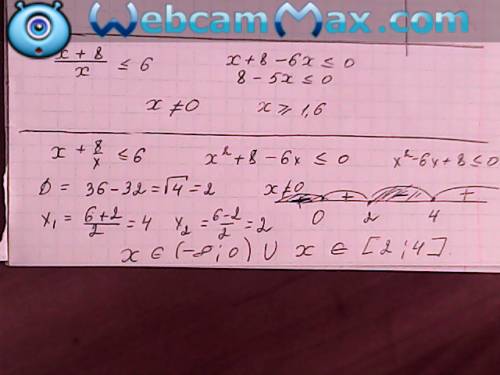 WebcamMax.com
(x + 8)/x ≤ 6    x + 8 - 6x ≤ 0
8 - 5x ≤ 0
x ≠ 0    x ⩾ 1,6
x + 8/x ≤ 6    x² + 8 - 6x ≤ 0    x² - 6x + 8 ≤ 0
D = 36 - 32 = √4 = 2    x ≠ 0    - + - +
x₁ = (6+2)/2 = 4    x₂ = (6-2)/2 = 2    0 2 4
x ∈ (-∞; 0) ∪ x ∈ [2; 4].